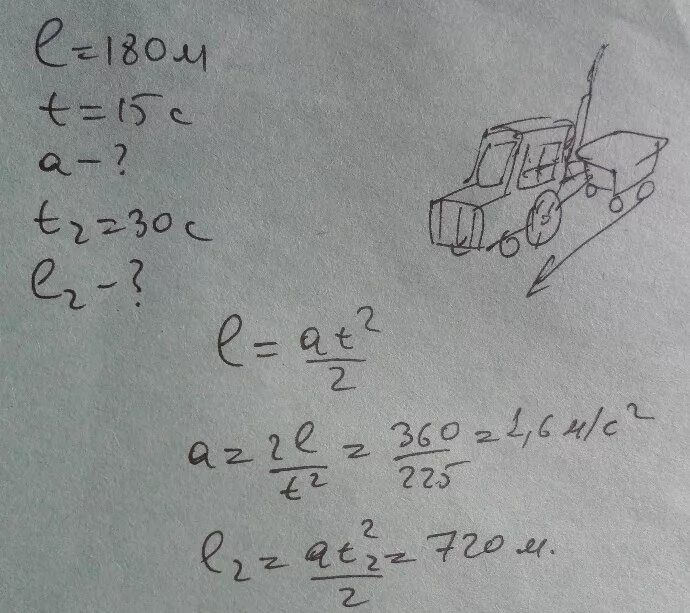 l = 180 м
t = 15 с
a - ?
t₂ = 30 с
l₂ - ?
l = at²/2
a = 2l/t² = 360/225 = 1,6 м/с²
l₂ = at₂²/2 = 720 м.